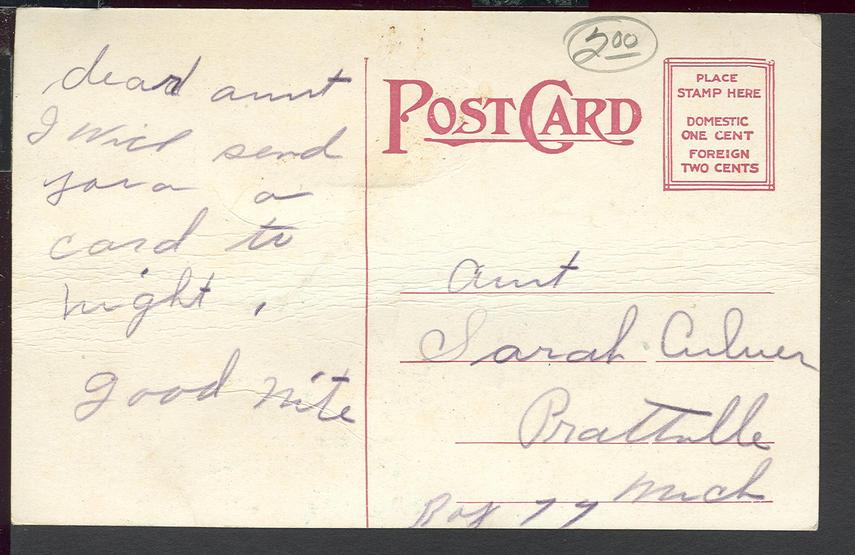 dear aunt
I Will send
you a
card to
night.
good nite
2.00
POST CARD
PLACE
STAMP HERE
DOMESTIC
ONE CENT
FOREIGN
TWO CENTS
aunt
Sarah Culver
Prattville
Mich
Box 77